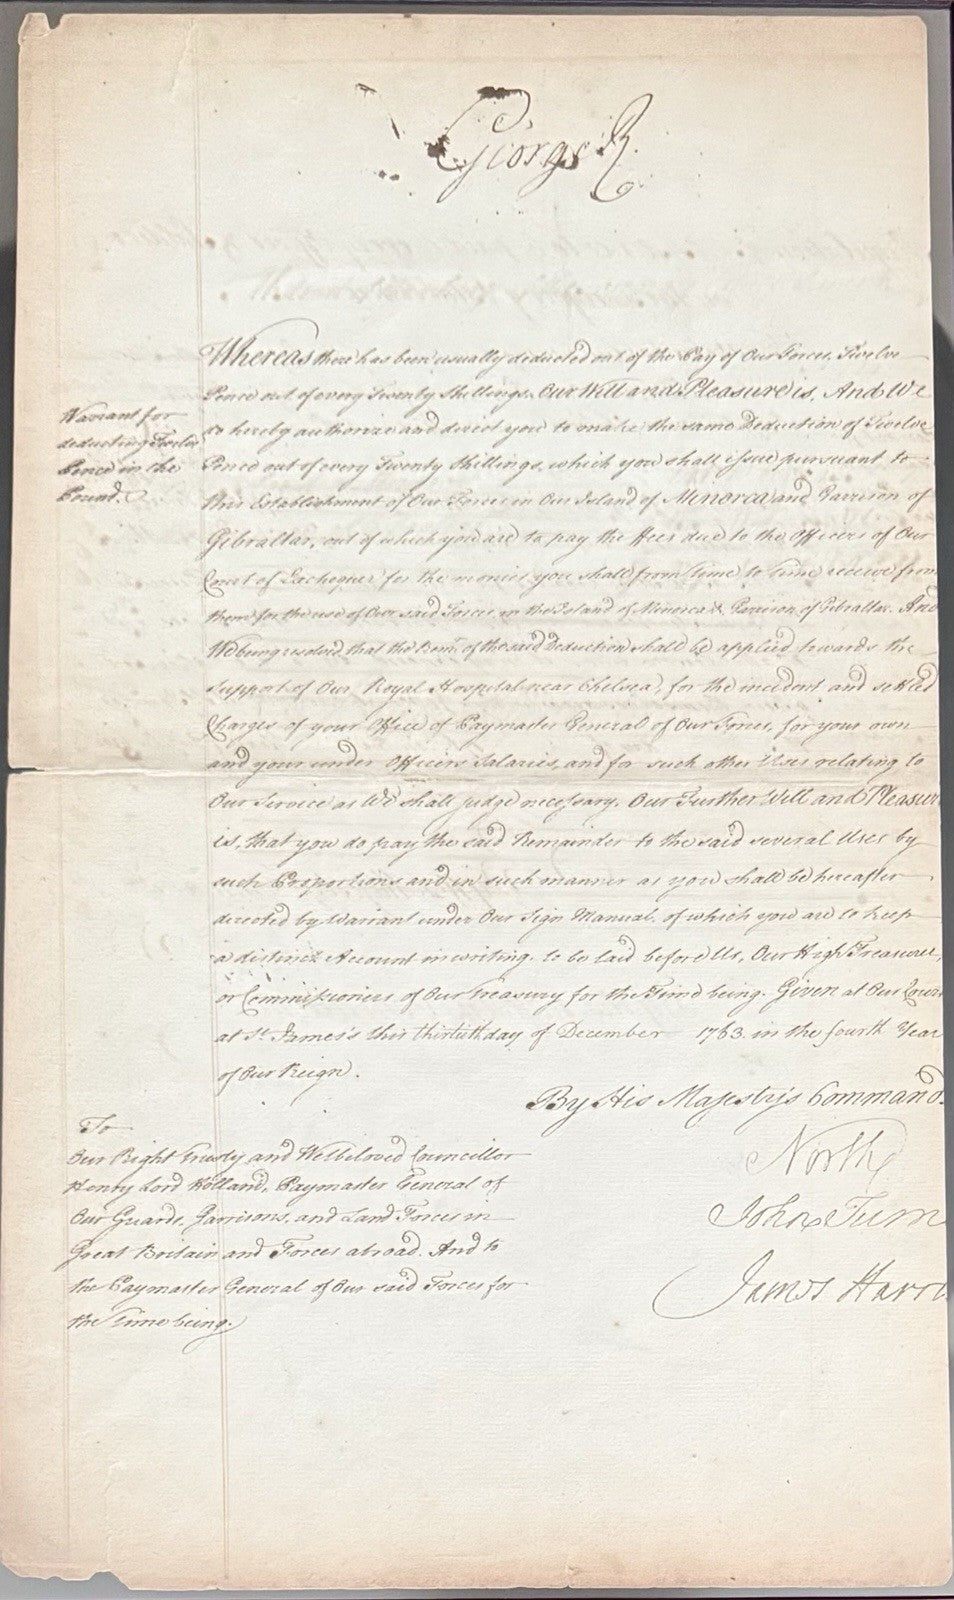 George R.
Whereas there has been usually deducted out of the Pay of Our Forces, Twelve
Pence out of every Twenty Shillings, Our Will and Pleasure is, And We
do hereby authorize and direct you to make the same Deduction of Twelve
Pence out of every Twenty Shillings, which you shall issue pursuant to
this Establishment of Our Forces in Our Island of Minorca and Garrison of
Gibraltar, out of which you are to pay the ffees due to the Officers of Our
Court of Exchequer for the monies you shall from time to time receive from
them for the use of Our said Forces, in the Island of Minorca & Garrison of Gibraltar. And
We being resolved, that the Rem.r of the said Deduction shall be applied towards the
support of Our Royal Hospital near Chelsea, for the incident and settled
Charges of your Office of Paymaster General of Our Forces, for your own
and your under Officers Salaries, and for such other Uses relating to
Our Service as We shall judge necessary. Our Further Will and Pleasur
is, that you do pay the said Remainder to the said several Uses by
such Proportions and in such manner as you shall be hereafter
directed by Warrant under Our Sign Manual, of which you are to keep
a distinct Account in writing, to be laid before Us, Our High Treasurer,
or Commissioners of Our Treasury for the Time being. Given at Our Cour
at St. James's this thirtieth day of December 1763. in the fourth Year
of Our Reign.
Warrant for
deducting Twelve
Pence in the
Pound.
By His Majesty's Command.
North
John Turn
James Harri
To
Our Right Trusty and Welbeloved Councillor
Henry Lord Holland, Paymaster General of
Our Guards, Garrisons, and Land Forces in
Great Britain and Forces abroad. And to
the Paymaster General of Our said Forces for
the Time being.